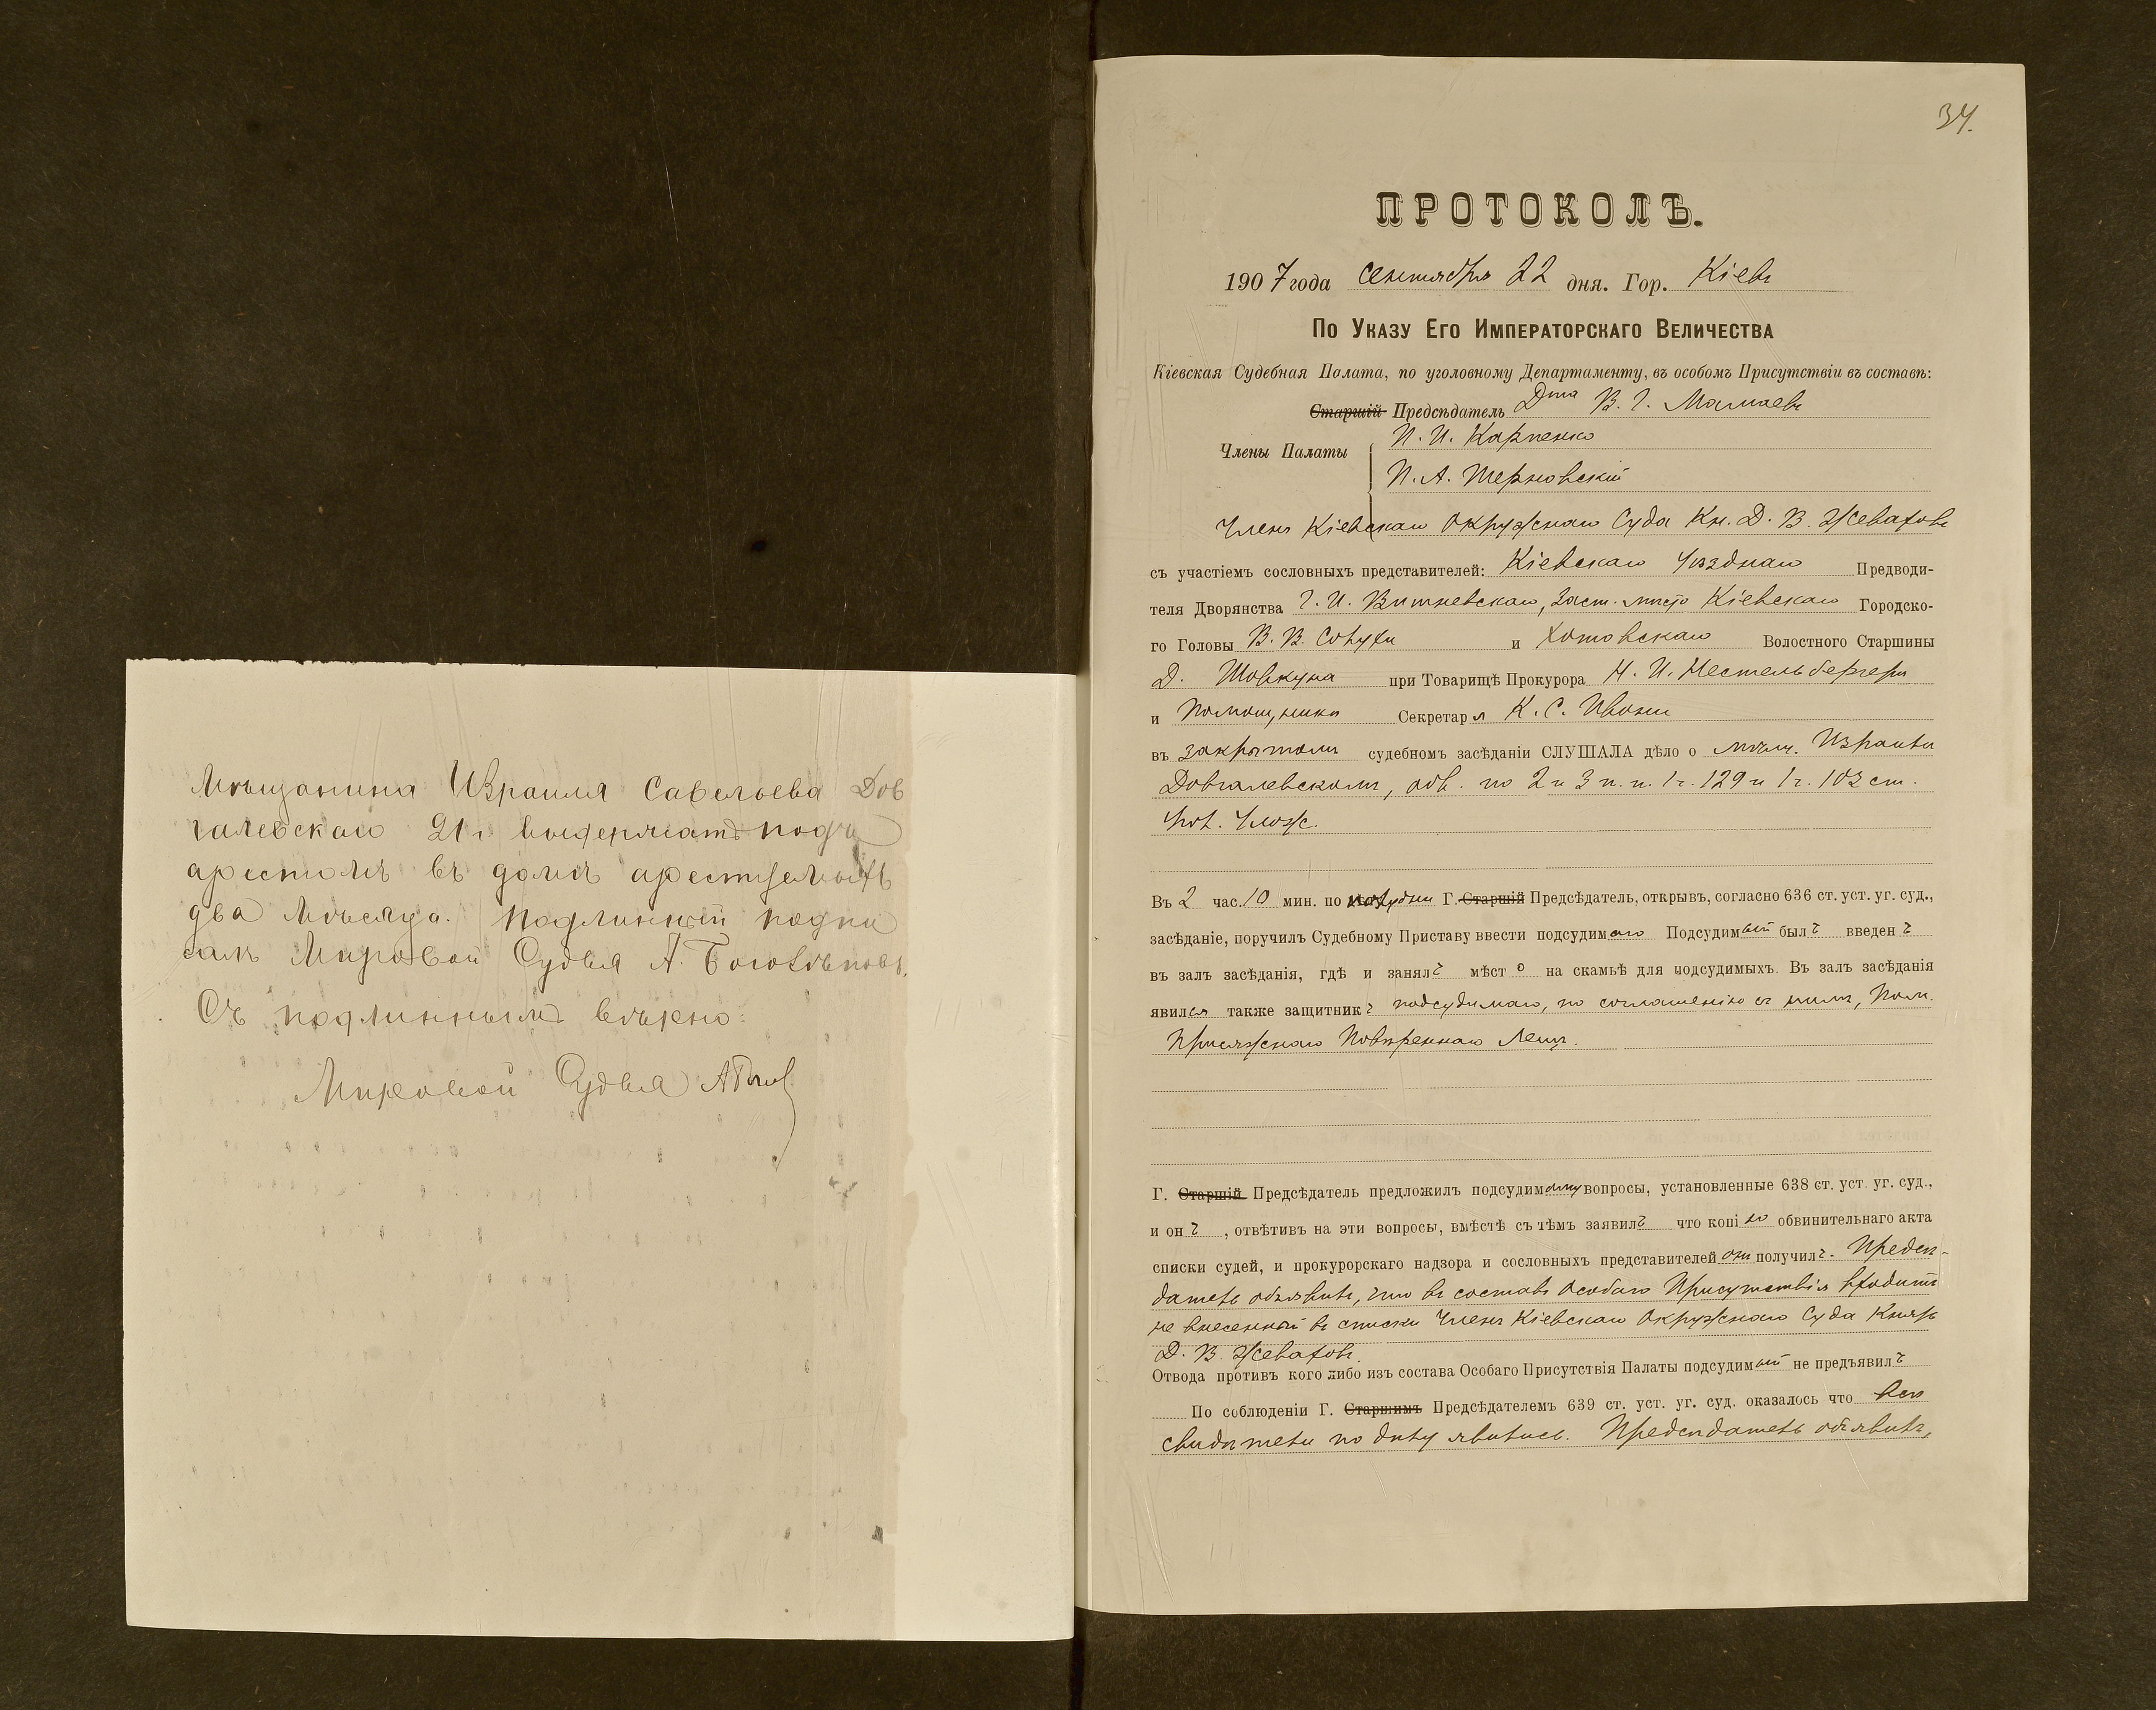 Мѣщанина Израиля Савельева Дов
галевскаго 21 г. выдержать подъ
арестомъ въ домѣ арестуемыхъ
два мѣсяца. Подлинный подпи
салъ Мировой Судья А. Боголѣповъ.
Съ подлиннымъ вѣрно:
Мировой Судья
34.
ПРОТОКОЛЪ.
1907 года сентября 22 дня. Гор. Кіевъ
По Указу Его Императорскаго Величества
Кіевская Судебная Палата, по уголовному Департаменту, въ особомъ Присутствіи въ составѣ:
Старшій Предсѣдатель Д-та В. Г. Мамаевъ
П. И. Карпенко
Члены Палаты
П. А. Терновскій
Членъ Кіевскаго Окружнаго Суда Кн. Д. В. Жеваховъ
съ участіемъ сословныхъ представителей: Кіевскаго Уѣзднаго Предводи-
теля Дворянства Г. И. Вишневскаго, заст. мѣсто Кіевскаго Городско-
го Головы В. В. и Хотовскаго Волостного Старшины
Д. Шовкуна при Товарищѣ Прокурора Н. И. Нестельбергера
и Помощника Секретаря К. С.
въ закрытомъ судебномъ засѣданіи СЛУШАЛА дѣло о мѣщ. Израилѣ
Довгалевскомъ, обв. по 2 и 3 п. п. 1 ч. 129 и 1 ч. 103 ст.
Уг. Улож.
Въ 2 час. 10 мин. по полудни Г. Старшій Предсѣдатель, открывъ, согласно 636 ст. уст. уг. суд.,
засѣданіе, поручилъ Судебному Приставу ввести подсудимаго Подсудимый былъ введенъ
въ залъ засѣданія, гдѣ и занялъ мѣсто на скамьѣ для подсудимыхъ. Въ залъ засѣданія
явился также защитникъ подсудимаго, по соглашенію съ нимъ, Пом.
Присяжнаго Повѣреннаго Лещъ.
Г. Старшій Предсѣдатель предложилъ подсудимому вопросы, установленные 638 ст. уст. уг. суд.,
и онъ, отвѣтивъ на эти вопросы, вмѣстѣ съ тѣмъ заявилъ что копію обвинительнаго акта
списки судей, и прокурорскаго надзора и сословныхъ представителей онъ получилъ. Предсѣ-
датель объявилъ, что въ составъ Особаго Присутствія входитъ
не внесенный въ списки Членъ Кіевскаго Окружнаго Суда Князь
Д. В. Жеваховъ.
Отвода противъ кого либо изъ состава Особаго Присутствія Палаты подсудимый не предъявилъ
По соблюденіи Г. Старшимъ Предсѣдателемъ 639 ст. уст. уг. суд. оказалось что всѣ
свидѣтели по дѣлу явились. Предсѣдатель объявилъ,